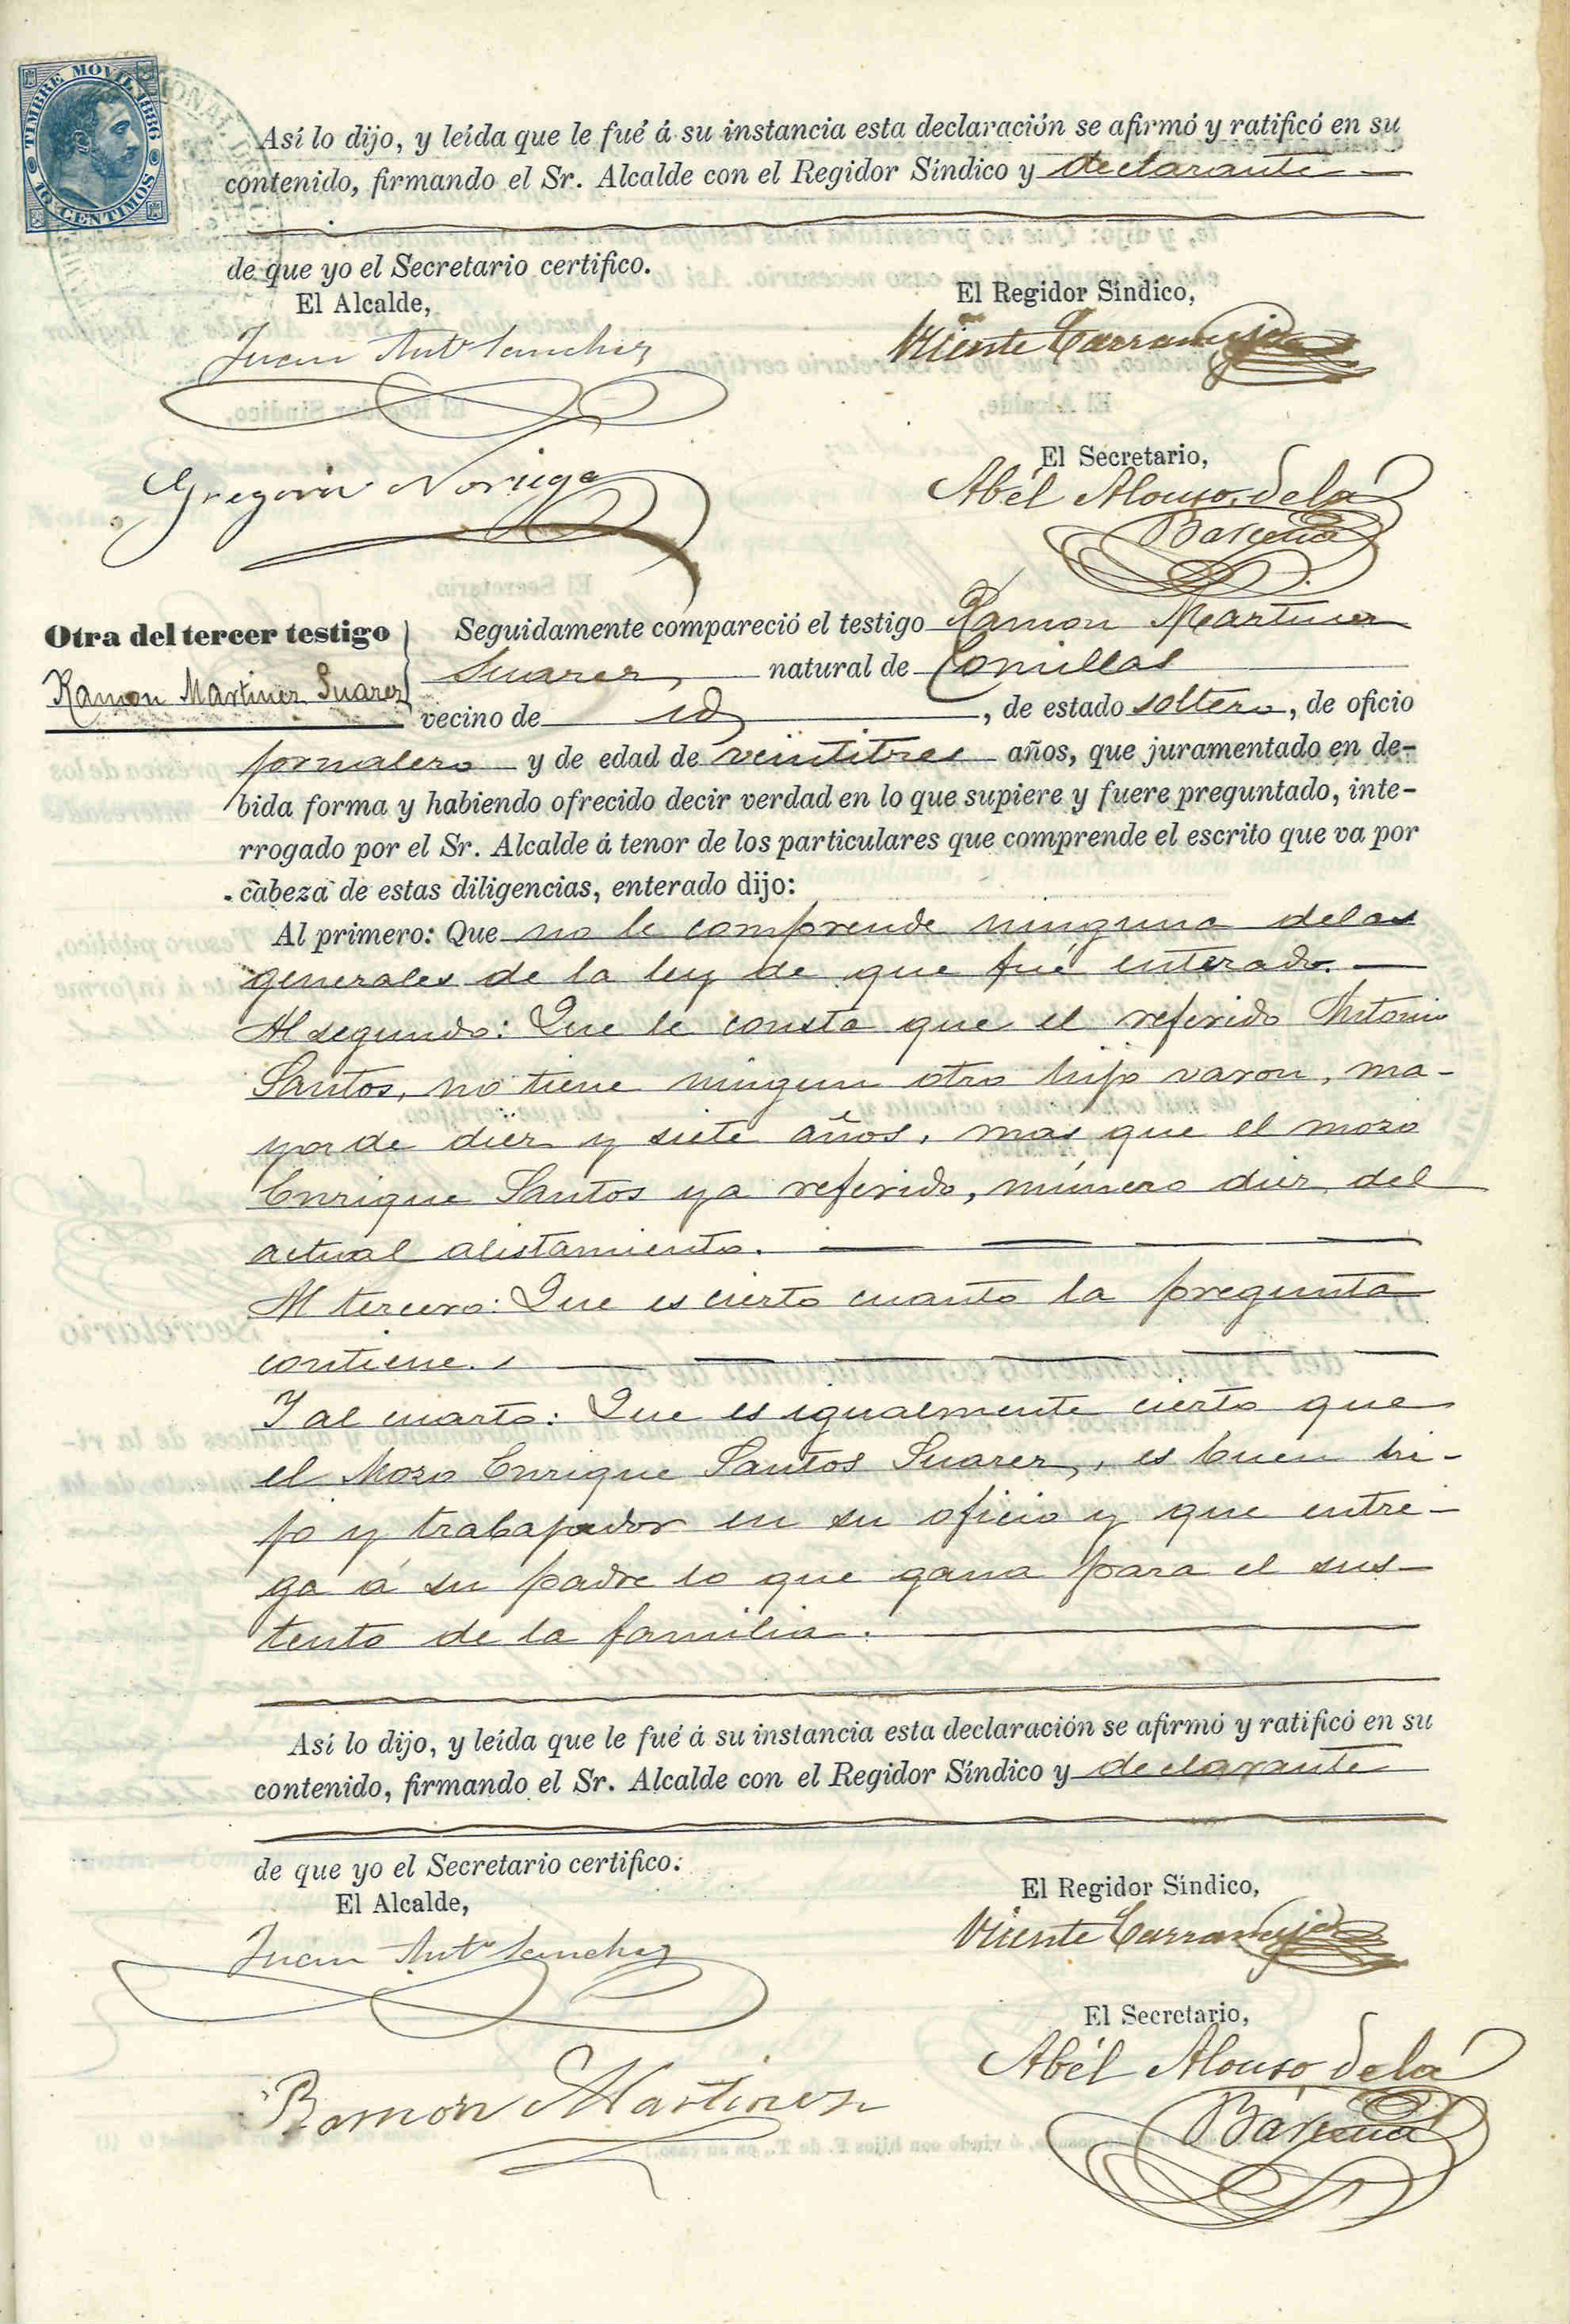 TIMBRE MOVIL 1886
10 CENTIMOS
Así lo dijo, y leída que le fué á su instancia esta declaración se afirmó y ratificó en su
contenido, firmando el Sr. Alcalde con el Regidor Síndico y declarante
de que yo el Secretario certifico.
El Alcalde,
El Regidor Síndico,
Juan Antº Sanchez
Vicente
El Secretario,
Gregorio Noriega
Abél Alonso de la
Bárcena
Otra del tercer testigo
Ramon Martinez Suarez
Seguidamente compareció el testigo Ramon Martinez
Suarez, natural de Comillas
vecino de id, de estado soltero, de oficio
jornalero y de edad de veintitres años, que juramentado en de-
bida forma y habiendo ofrecido decir verdad en lo que supiere y fuere preguntado, inte-
rrogado por el Sr. Alcalde á tenor de los particulares que comprende el escrito que va por
cabeza de estas diligencias, enterado dijo:
Al primero: Que no le comprende ninguna de las
generales de la ley de que fué enterado.
Al segundo: Que le consta que el referido Antonio
Santos, no tiene ningun otro hijo varon, ma-
yor de diez y siete años, mas que el mozo
Enrique Santos ya referido, número diez del
actual alistamiento.
Al tercero: Que es cierto cuanto la pregunta
contiene.
Y al cuarto: Que es igualmente cierto que
el Mozo Enrique Santos Suarez, es buen hi-
jo y trabajador en su oficio y que entre-
ga á su padre lo que gana para el sus-
tento de la familia.
Así lo dijo, y leída que le fué á su instancia esta declaración se afirmó y ratificó en su
contenido, firmando el Sr. Alcalde con el Regidor Síndico y declarante
de que yo el Secretario certifico.
El Alcalde,
El Regidor Síndico,
Juan Antº Sanchez
Vicente
El Secretario,
Abél Alonso de la
Ramon Martinez
Bárcena